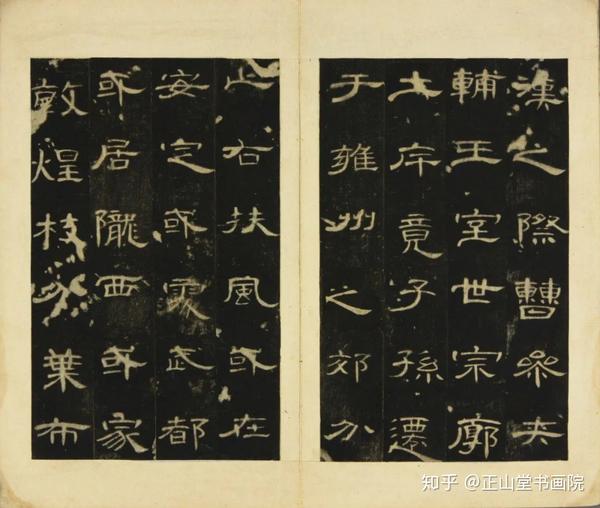 漢之際曹參夾
輔王室世宗廓
土斥竟子孫遷
于雍州之郊分
止右扶風或在
安定或處武都
或居隴西或家
敦煌枝分葉布
知乎 @正山堂书画院